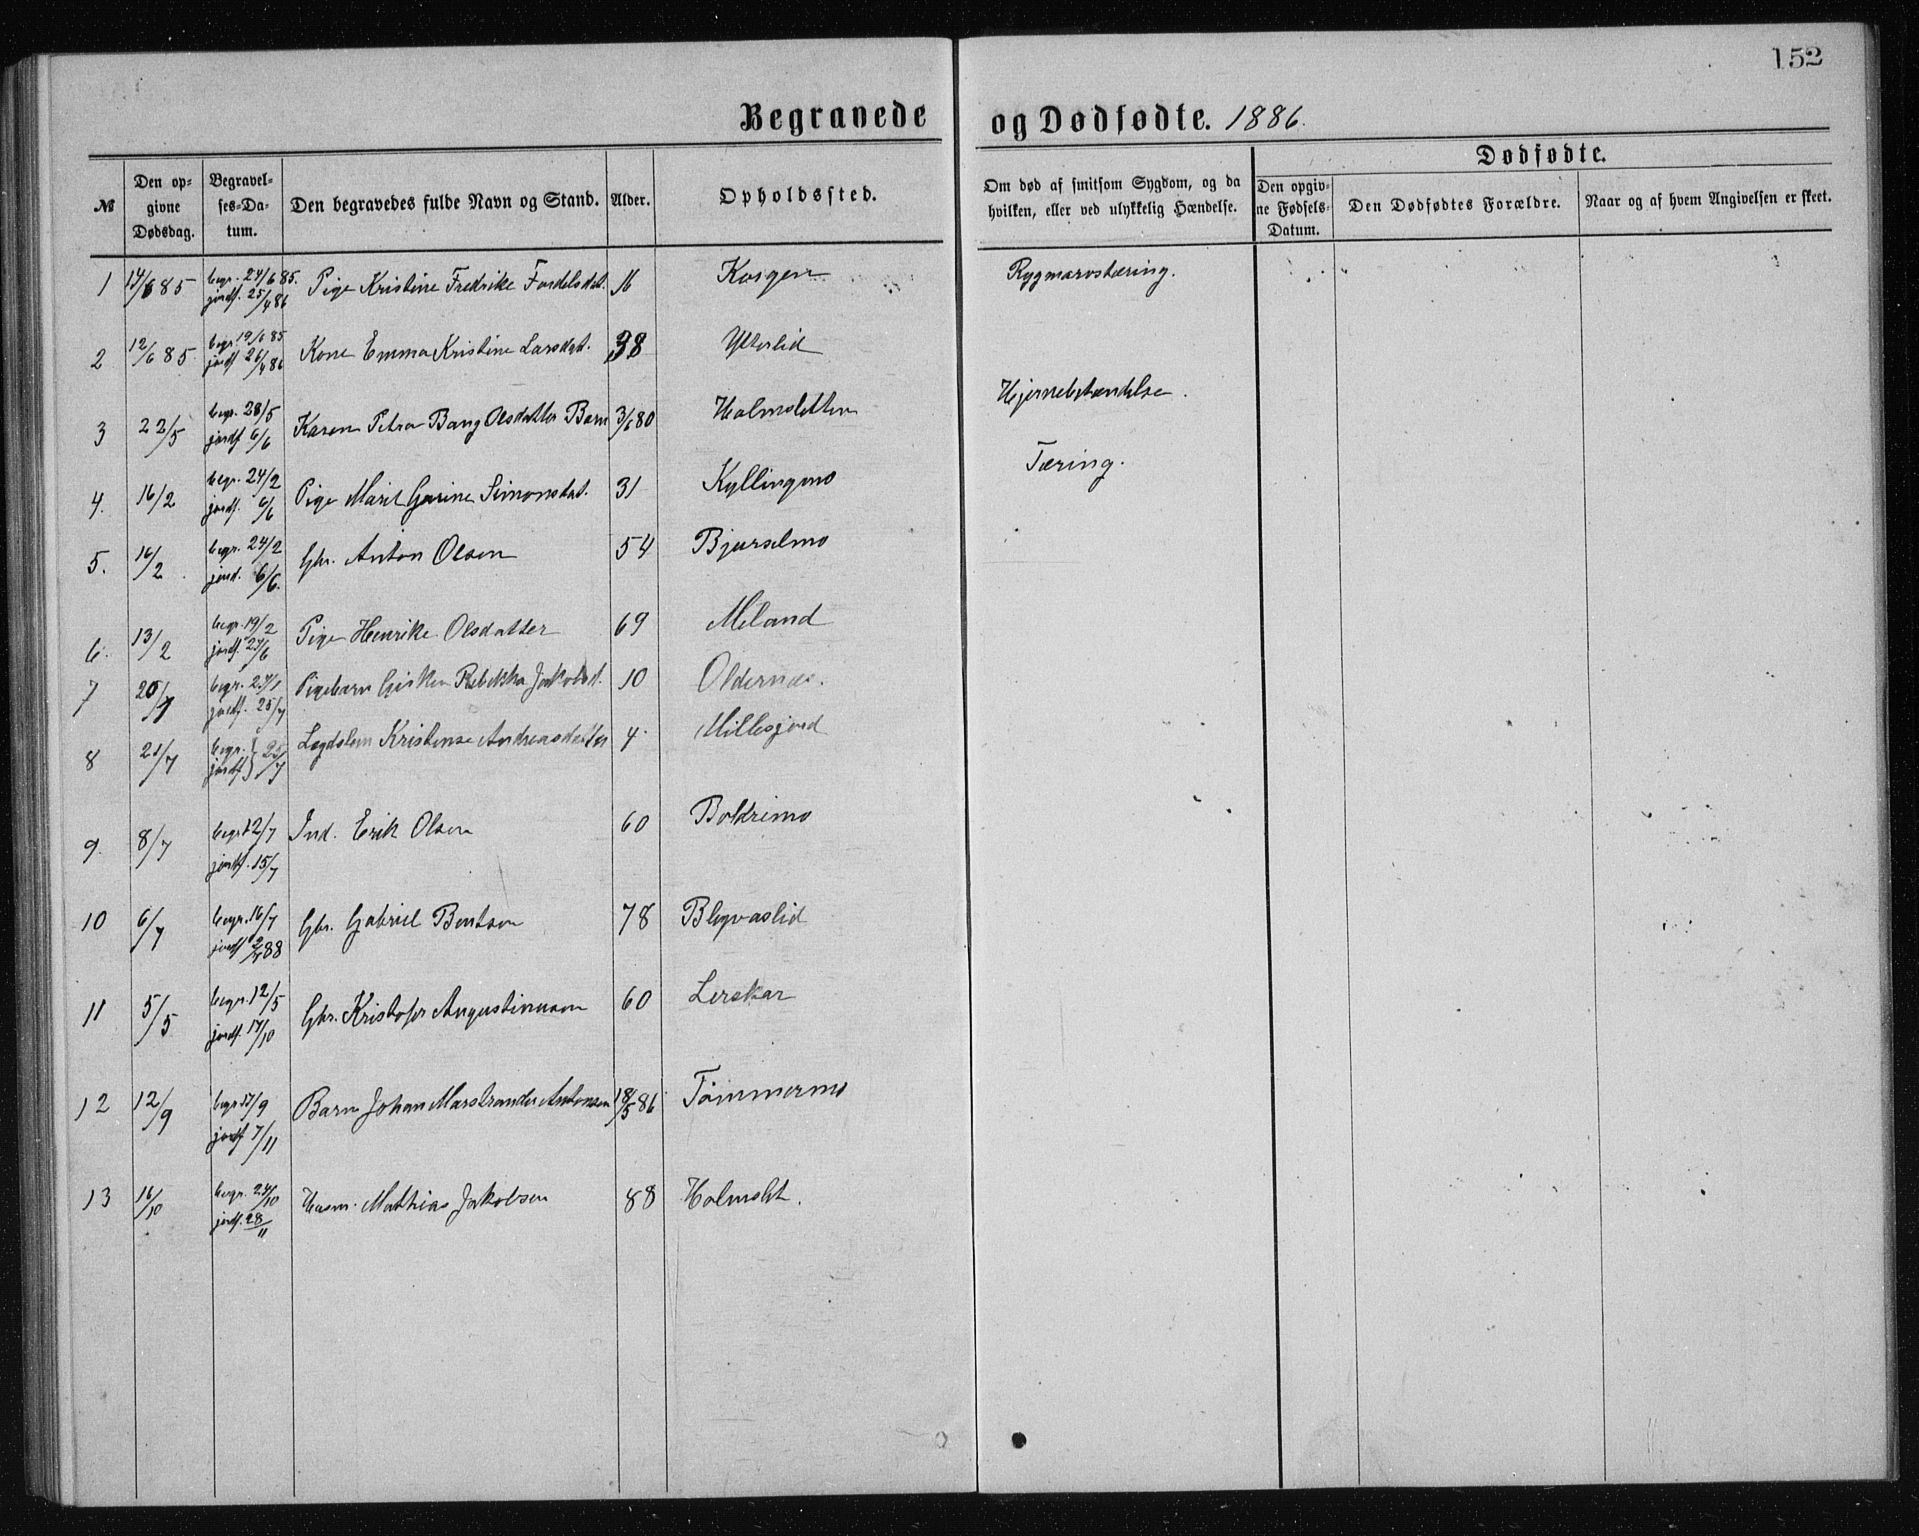 152
Begravede og Dødfødte. 1886.
№
Den opgivne Dødsdag.
Begravelses-Datum.
Den begravedes fulde Navn og Stand.
Alder.
Opholdssted.
Om død af smitsom Sygdom, og da hvilken, eller ved ulykkelig Hændelse.
Dødfødte.
Den opgivne Fødsels-Datum.
Den Dødfødtes Forældre.
Naar og af hvem Angivelsen er skeet.
1 14/6 85 begr. 24/6 85. jordf. 25/4 86 Pige Kristine Fredrike Fordelsdat. 16 Rygmarvstæring.
2 12/6 85 begr. 19/6 85 jordf. 26/4 86 Kone Emma Kristine Larsdat. 38 Ytterlid
3 22/5 begr. 28/5 jordf 6/6 Karen Petra Bang Olsdatter Barn 3/6 80 Holmsletten Hjernebetændelse.
4. 16/2 begr. 24/2 jordf. 6/6 Pige Marit Simonsdat. 31 Kyllingmo Tæring.
5. 16/2 begr. 24/2 jord. 6/6. Gbr. Anton Olsen 54 Bjurselmo
6. 13/2 begr. 19/2 jordf. 27/6 Pige Henrike Olsdatter 69 Meland
7 20/7 begr. jordf. 25/7 Pigebarn Rebekka Jakobsd. 10 Oldernes.
8 21/7 begr. jordf } 25/7 Lægdslem Andreasdatter 4. Millesjord
9. 8/7 begr. 12/7 jordf. 15/7 Ind. Erik Olsen 60
10 6/7 begr. 16/7 jordf 88 Gbr. Gabriel Bentsen 78
11 5/5 begr. 12/5 jordf. 17/10 Gbr. Kristofer Augustinusen 60 Lerskar
12 12/9 begr 17/9 jordf 7/11 Barn Johan Marstrander Antonsen 18/5 86 Tømmermo
13 16/10 begr. 24/10 jordf. 28/11 Husm. Mathias Jakobsen 88 Holmslet.